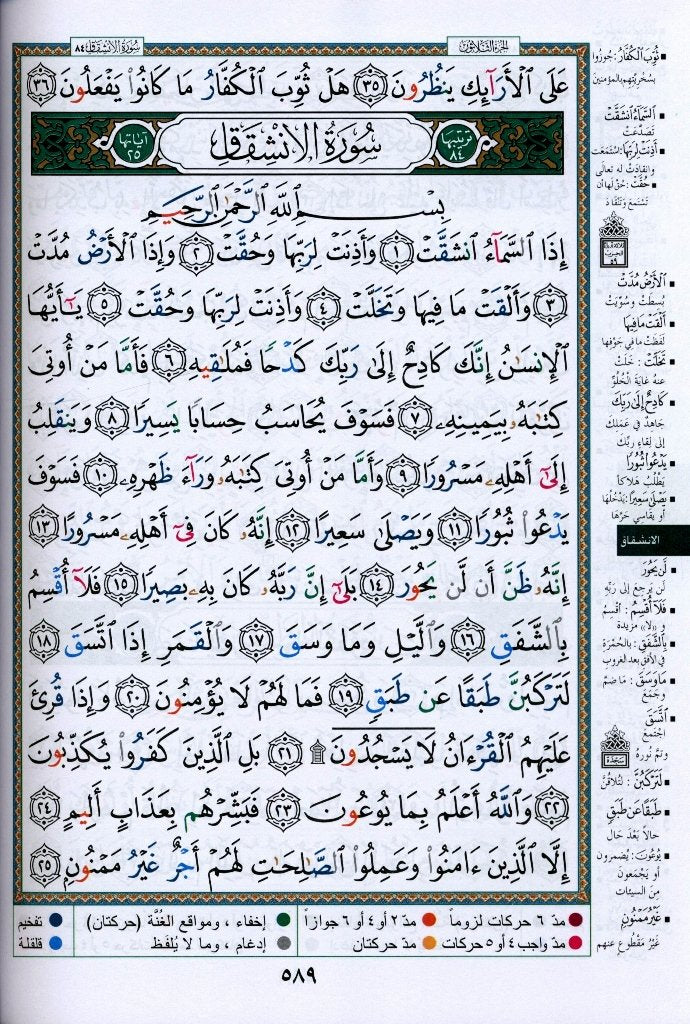 سُورَةُ الانشقاق ٨٤
الجزء الثلاثون
عَلَى ٱلْأَرَآئِكِ يَنظُرُونَ ٣٥ هَلْ ثُوِّبَ ٱلْكُفَّارُ مَا كَانُوا۟ يَفْعَلُونَ ٣٦
ترتيبها ٨٤ سُورَةُ الانشِقَاق آياتها ٢٥
بِسْمِ ٱللَّهِ ٱلرَّحْمَٰنِ ٱلرَّحِيمِ
إِذَا ٱلسَّمَآءُ ٱنشَقَّتْ ١ وَأَذِنَتْ لِرَبِّهَا وَحُقَّتْ ٢ وَإِذَا ٱلْأَرْضُ مُدَّتْ
٣ وَأَلْقَتْ مَا فِيهَا وَتَخَلَّتْ ٤ وَأَذِنَتْ لِرَبِّهَا وَحُقَّتْ ٥ يَٰٓأَيُّهَا
ٱلْإِنسَٰنُ إِنَّكَ كَادِحٌ إِلَىٰ رَبِّكَ كَدْحًا فَمُلَٰقِيهِ ٦ فَأَمَّا مَنْ أُوتِىَ
كِتَٰبَهُۥ بِيَمِينِهِۦ ٧ فَسَوْفَ يُحَاسَبُ حِسَابًا يَسِيرًا ٨ وَيَنقَلِبُ
إِلَىٰٓ أَهْلِهِۦ مَسْرُورًا ٩ وَأَمَّا مَنْ أُوتِىَ كِتَٰبَهُۥ وَرَآءَ ظَهْرِهِۦ ١٠ فَسَوْفَ
يَدْعُوا۟ ثُبُورًا ١١ وَيَصْلَىٰ سَعِيرًا ١٢ إِنَّهُۥ كَانَ فِىٓ أَهْلِهِۦ مَسْرُورًا ١٣
إِنَّهُۥ ظَنَّ أَن لَّن يَحُورَ ١٤ بَلَىٰٓ إِنَّ رَبَّهُۥ كَانَ بِهِۦ بَصِيرًا ١٥ فَلَآ أُقْسِمُ
بِٱلشَّفَقِ ١٦ وَٱلَّيْلِ وَمَا وَسَقَ ١٧ وَٱلْقَمَرِ إِذَا ٱتَّسَقَ ١٨
لَتَرْكَبُنَّ طَبَقًا عَن طَبَقٍ ١٩ فَمَا لَهُمْ لَا يُؤْمِنُونَ ٢٠ وَإِذَا قُرِئَ
عَلَيْهِمُ ٱلْقُرْءَانُ لَا يَسْجُدُونَ ۩ ٢١ بَلِ ٱلَّذِينَ كَفَرُوا۟ يُكَذِّبُونَ
٢٢ وَٱللَّهُ أَعْلَمُ بِمَا يُوعُونَ ٢٣ فَبَشِّرْهُم بِعَذَابٍ أَلِيمٍ ٢٤
إِلَّا ٱلَّذِينَ ءَامَنُوا۟ وَعَمِلُوا۟ ٱلصَّٰلِحَٰتِ لَهُمْ أَجْرٌ غَيْرُ مَمْنُونٍۭ ٢٥
ثُوِّبَ الكُفَّارُ: جُوزُوا
بسُخريتِهم بالمؤمنين
السَّمَاءُ انشَقَّت
تَصَدَّعَتْ
أَذِنَتْ لِرَبِّهَا: اسْتَمَعَت
وانقادَتْ له تعالى
حُقَّتْ: حُقّ لها أن
تَسْتَمِعَ وَتَنْقادَ
الْأَرْضُ مُدَّتْ
بُسِطَتْ وسُوِّيَتْ
أَلْقَتْ مَا فِيهَا
لَفَظَتْ ما في جَوْفِها
تَخَلَّتْ: خَلَتْ
عنه غايَةَ الْخُلُوِّ
كَادِحٌ إِلَى رَبِّكَ
جَاهِدٌ في عَمَلِكَ
إلى لِقاءِ ربِّك
يَدْعُو ثُبُورًا
يَطْلُبُ هَلاكاً
يَصْلَى سَعِيرًا: يَدْخُلُها
أو يقاسي حَرَّها
الانشقاق
لَن يَحُورَ
لَن يَرجِعَ إلى رَبِّهِ
فَلَا أُقْسِمُ: أُقْسِمُ
و «لا» مزيدة
بِالشَّفَقِ: بالحُمْرَة
في الأفق بعد الغروب
مَا وَسَقَ: مَا ضَمَّ
وجَمَعَ
اتَّسَقَ
اجْتَمَعَ
وتَمَّ نُورُهُ
سجدة
لَتَرْكَبُنَّ: لَتُلاقُنَّ
طَبَقًا عَن طَبَقٍ
حالاً بَعْدَ حال
يُوعُونَ: يُضمرون
أو يَجْمَعونَ
مِنَ السيئات
غَيْرُ مَمْنُونٍ
غَيْرُ مَقْطُوعٍ عنهم
مدّ ٦ حركات لزوماً مدّ ٢ أو ٤ أو ٦ جوازاً إخفاء ، ومواقع الغُنَّة (حركتان) تفخيم
مدّ واجب ٤ أو ٥ حركات مدّ حركتان إدغام ، وما لا يُلفَظ قلقلة
٥٨٩